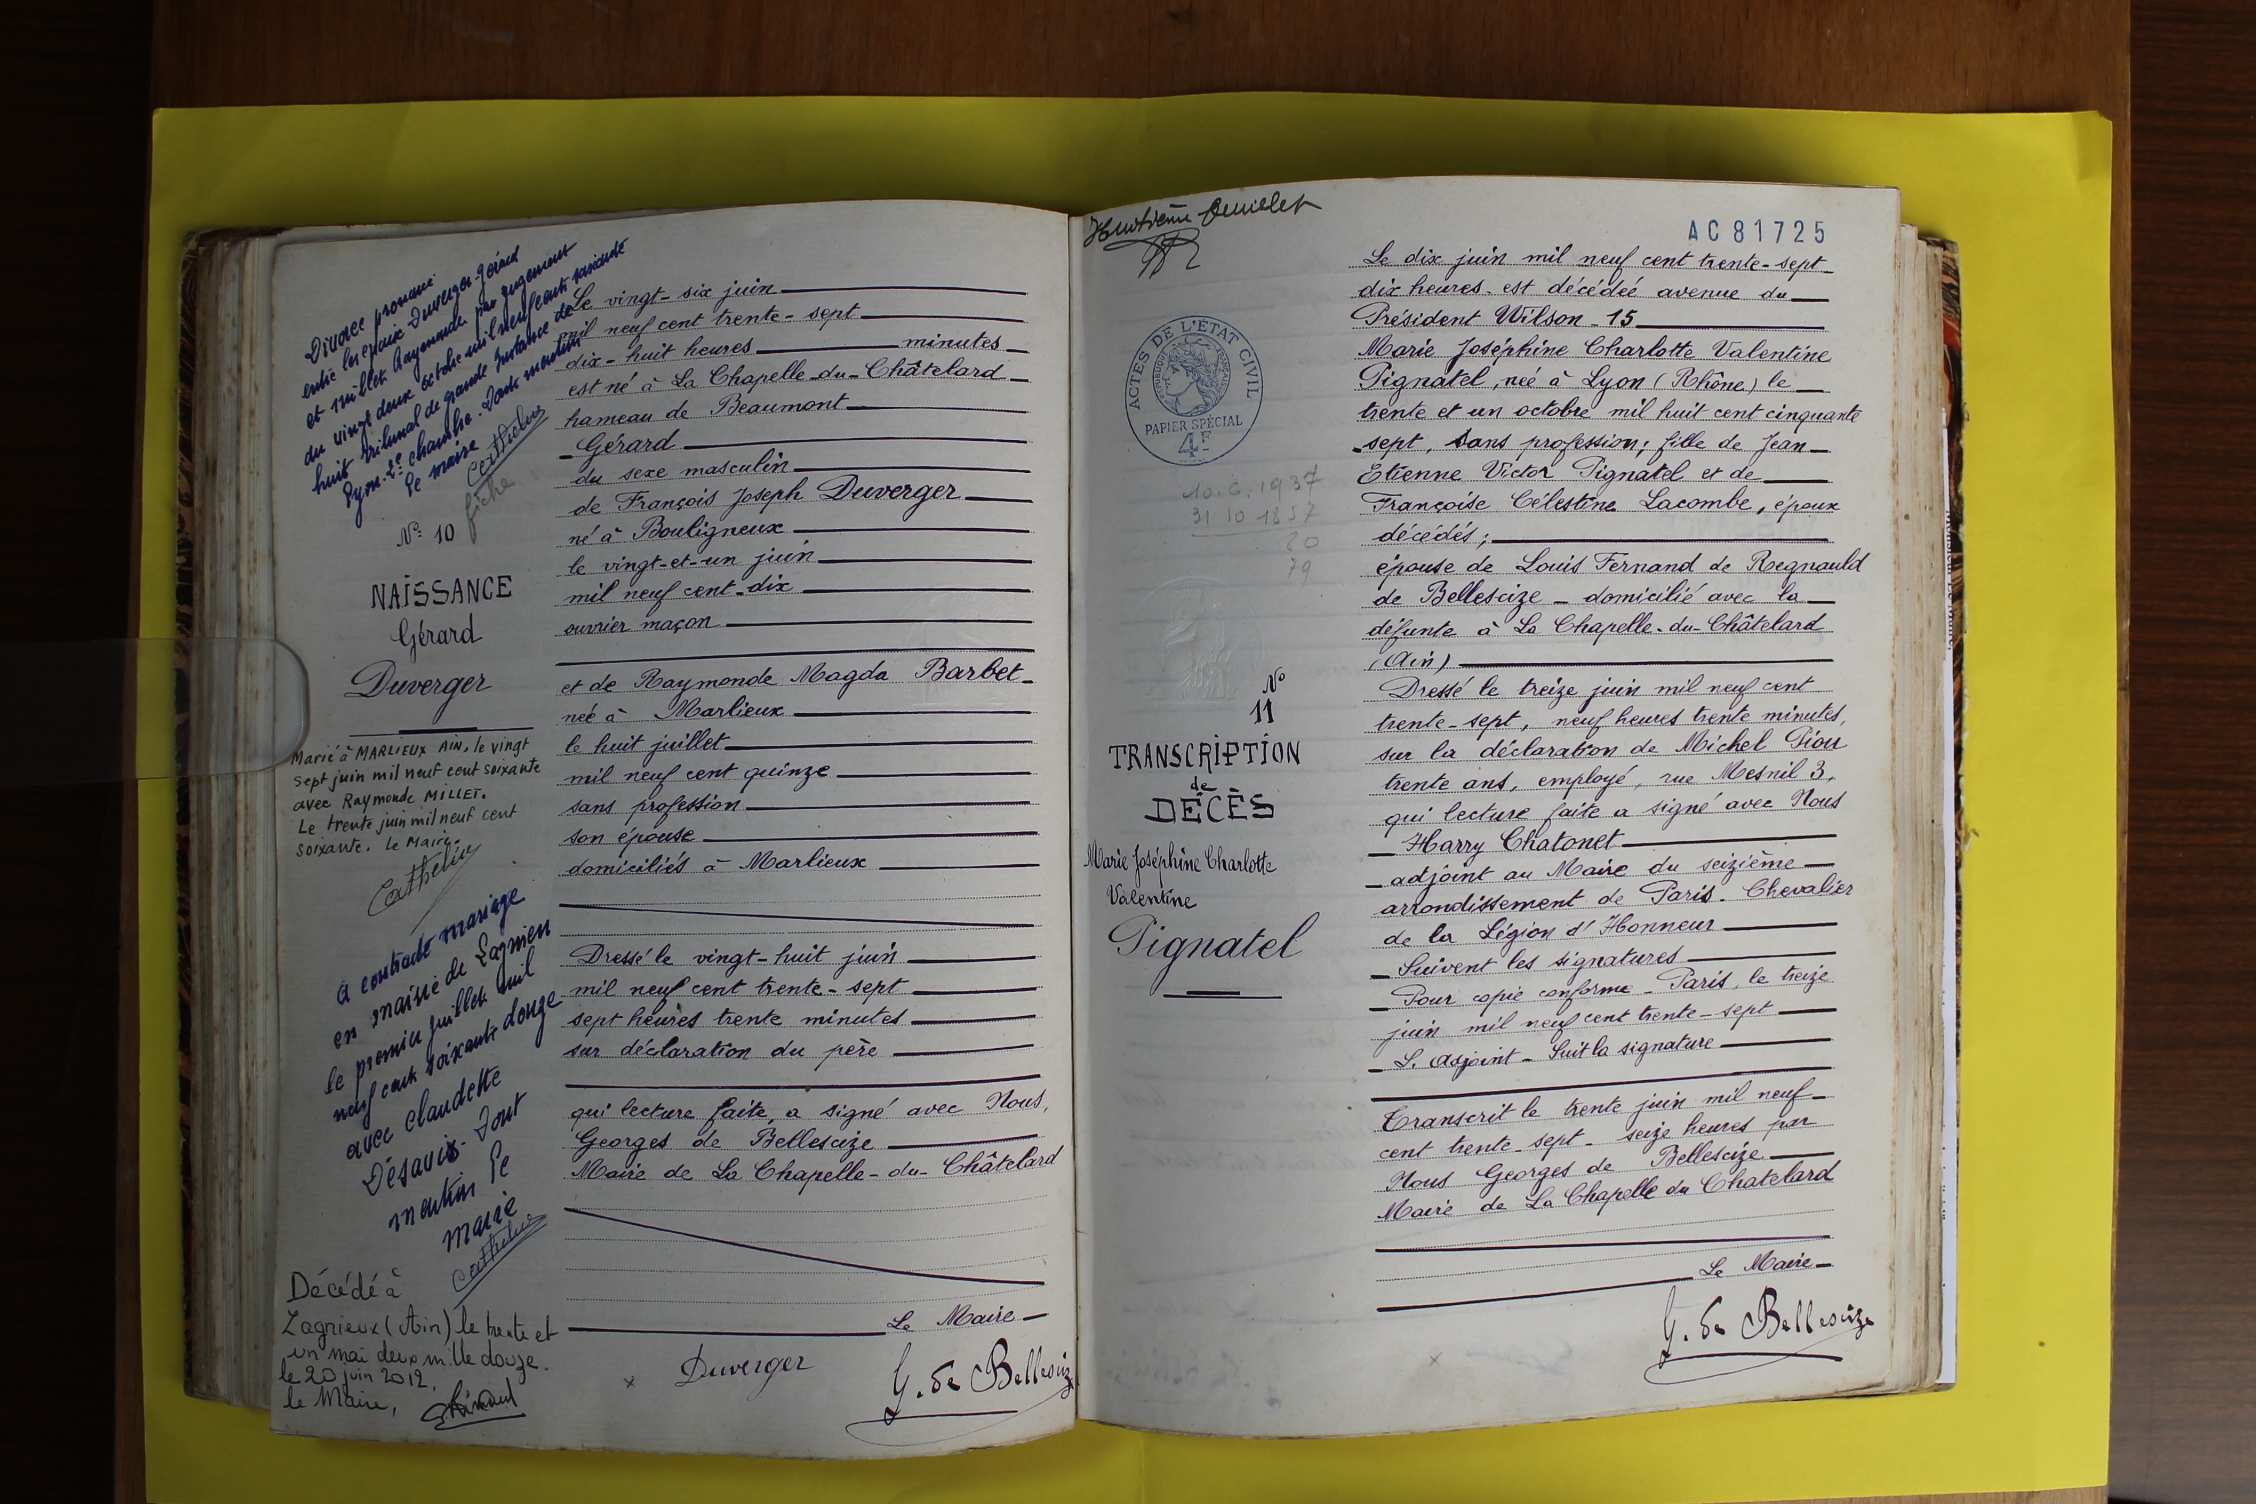 Divorce prononcé
entre les époux Duverger Gérard
et Millet Raymonde par jugement
du vingt deux octobre mil neuf cent soixante
huit tribunal de grande Instance de
Lyon. 2e chambre. Dont mention
Le maire
Cathelin
fiche
Nº 10
NAISSANCE
Gérard
Duverger
Marié à MARLIEUX AIN, le vingt
sept juin mil neuf cent soixante
avec Raymonde MILLET.
Le trente juin mil neuf cent
soixante. Le Maire.
Cathelin
a contracté mariage
en mairie de Lagnieu
le premier juillet mil
neuf cent soixante douze
avec Claudette
Désavis. Dont
mention Le
maire
Cathelin
Décédé à
Lagnieux (Ain) le trente et
un mai deux mille douze.
le 20 juin 2012.
le Maire,
Le vingt-six juin
mil neuf cent trente-sept
dix-huit heures minutes
est né à La Chapelle-du-Châtelard
hameau de Beaumont
Gérard
du sexe masculin
de François Joseph Duverger
né à Bouligneux
le vingt-et-un juin
mil neuf cent dix
ouvrier maçon
et de Raymonde Magda Barbet
née à Marlieux
le huit juillet
mil neuf cent quinze
sans profession
son épouse
domiciliés à Marlieux
Dressé le vingt-huit juin
mil neuf cent trente-sept
sept heures trente minutes
sur déclaration du père
qui lecture faite, a signé avec Nous,
Georges de Bellescize
Maire de La Chapelle-du-Châtelard
Le Maire
x Duverger
G. de Bellescize
Huitième feuillet
AC 81725
ACTES DE L'ÉTAT CIVIL
RÉPUBLIQUE FRANÇAISE
PAPIER SPÉCIAL
4F
10.6.1937
31 10 1857
20
79
Nº
11
TRANSCRIPTION
de
DÉCÈS
Marie Joséphine Charlotte
Valentine
Pignatel
Le dix juin mil neuf cent trente-sept
dix heures est décédée avenue du
Président Wilson - 15
Marie Joséphine Charlotte Valentine
Pignatel, née à Lyon (Rhône) le
trente et un octobre mil huit cent cinquante
sept, sans profession; fille de Jean
Etienne Victor Pignatel et de
Françoise Célestine Lacombe, époux
décédés;
épouse de Louis Fernand de Regnauld
de Bellescize - domicilié avec la
défunte à La Chapelle-du-Châtelard
(Ain)
Dressé le treize juin mil neuf cent
trente-sept, neuf heures trente minutes,
sur la déclaration de Michel Piou
trente ans, employé, rue Mesnil 3,
qui lecture faite a signé avec Nous
Harry Chatonet
adjoint au Maire du seizième
arrondissement de Paris. Chevalier
de la Légion d'Honneur
Suivent les signatures
Pour copie conforme - Paris, le treize
juin mil neuf cent trente-sept
L. adjoint - Suit la signature
Transcrit le trente juin mil neuf
cent trente-sept - seize heures par
Nous Georges de Bellescize
Maire de La Chapelle du Chatelard
Le Maire
x
G. de Bellescize